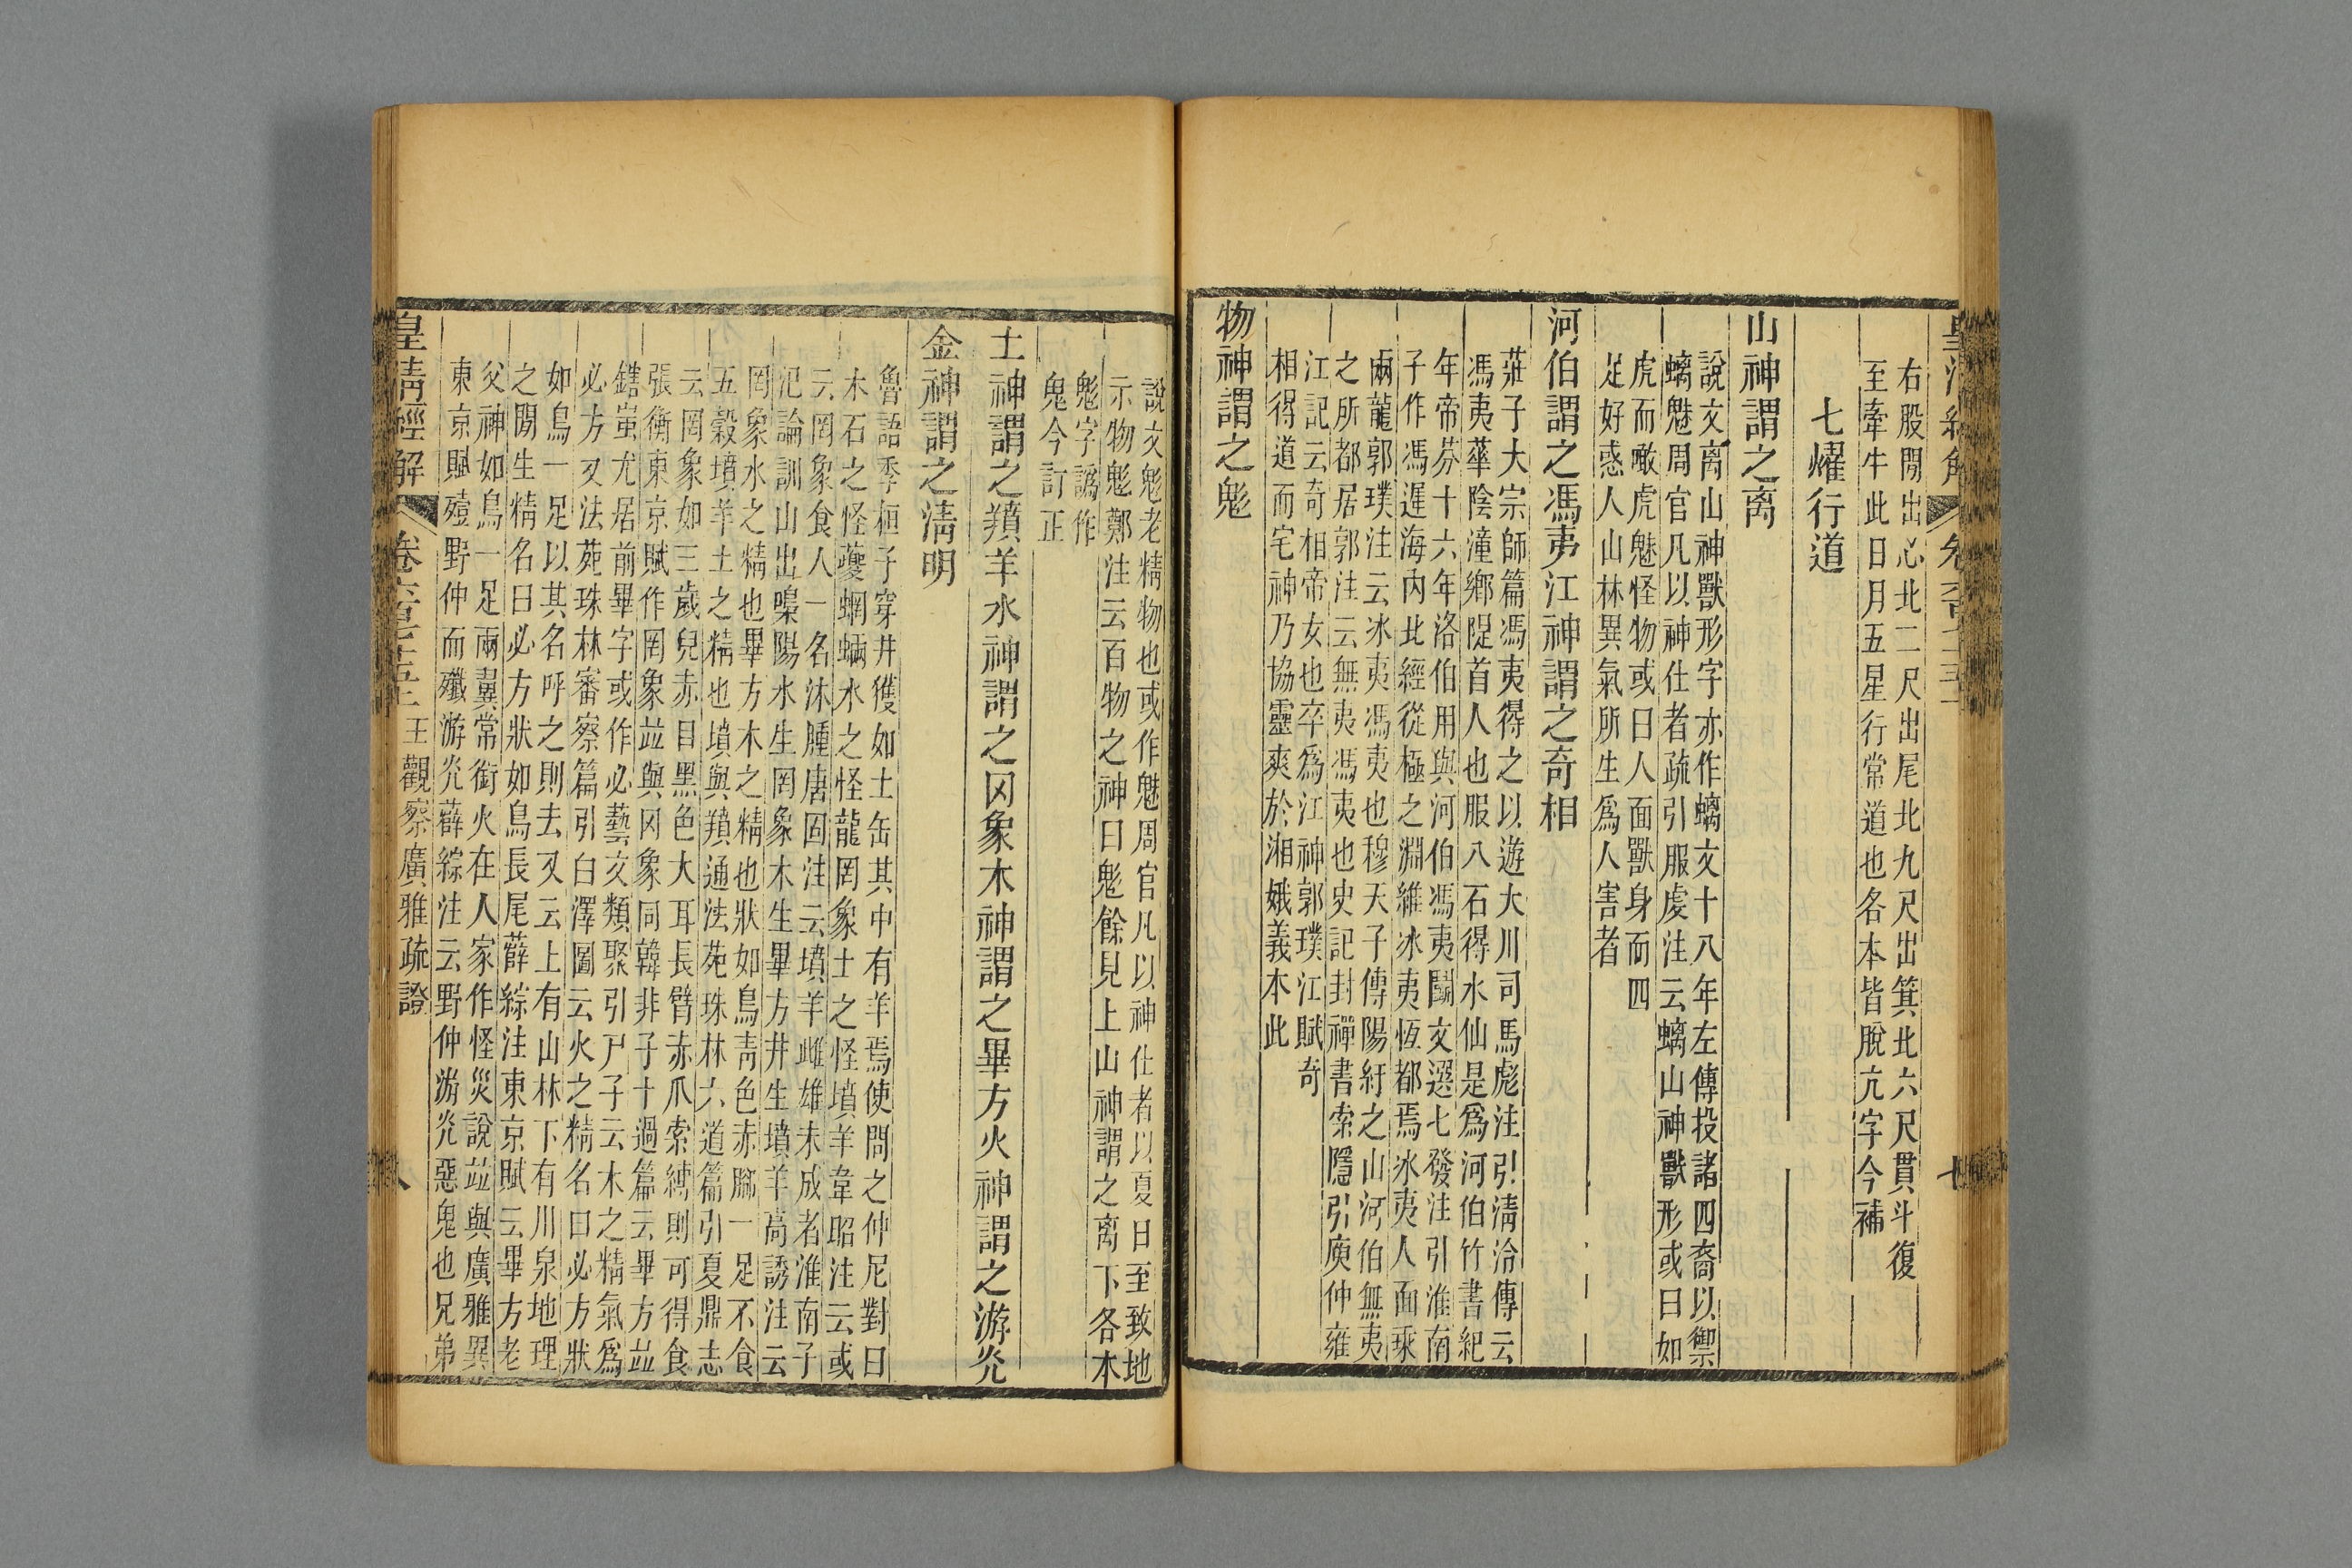 右股閒出心北二尺出尾北九尺出箕北六尺貫斗復
至牽牛此日月五星行常道也各本皆脫亢字今補
七燿行道
山神謂之离
說文离山神獸形字亦作螭文十八年左傳投諸四裔以禦
螭魅周官凡以神仕者疏引服虔注云螭山神獸形或曰如
虎而噉虎魅怪物或曰人面獸身而四
足好惑人山林異氣所生爲人害者
河伯謂之馮夷江神謂之奇相
莊子大宗師篇馮夷得之以遊大川司馬彪注引淸泠傳云
馮夷華陰潼鄉隄首人也服八石得水仙是爲河伯竹書紀
年帝芬十六年洛伯用與河伯馮夷鬭文選七發注引淮南
子作馮遲海內北經從極之淵維冰夷恆都焉冰夷人面椉
兩龍郭璞注云冰夷馮夷也穆天子傳陽紆之山河伯無夷
之所都居郭注云無夷馮夷也史記封禪書索隱引庾仲雍
江記云奇相帝女也卒爲江神郭璞江賦奇
相得道而宅神乃協靈爽於湘娥義本此
物神謂之鬽
說文鬽老精物也或作魅周官凡以神仕者以夏日至致地
示物鬽鄭注云百物之神曰鬽餘見上山神謂之离下各本
鬽字譌作
鬼今訂正
土神謂之羵羊水神謂之罔象木神謂之畢方火神謂之游光
金神謂之淸明
魯語季桓子穿井獲如土缶其中有羊焉使問之仲尼對曰
木石之怪夔蝄蜽水之怪龍罔象土之怪墳羊韋昭注云或
云罔象食人一名沐腫唐固注云墳羊雌雄未成者淮南子
氾論訓山出嘄陽水生罔象木生畢方井生墳羊高誘注云
罔象水之精也畢方木之精也狀如鳥靑色赤腳一足不食
五穀墳羊土之精也墳與羵通法苑珠林六道篇引夏鼎志
云罔象如三歲兒赤目黑色大耳長臂赤爪索縛則可得食
張衡東京賦作罔象竝與罔象同韓非子十過篇云畢方竝
鎋蚩尤居前畢字或作必藝文類聚引尸子云木之精氣爲
必方又法苑珠林審察篇引白澤圖云火之精名曰必方狀
如鳥一足以其名呼之則去又云上有山林下有川泉地理
之閒生精名曰必方狀如鳥長尾薛綜注東京賦云畢方老
父神如鳥一足兩翼常銜火在人家作怪災說竝與廣雅異
東京賦殪野仲而殲游光薛綜注云野仲游光惡鬼也兄弟
皇淸經解
王觀察廣雅疏證
八